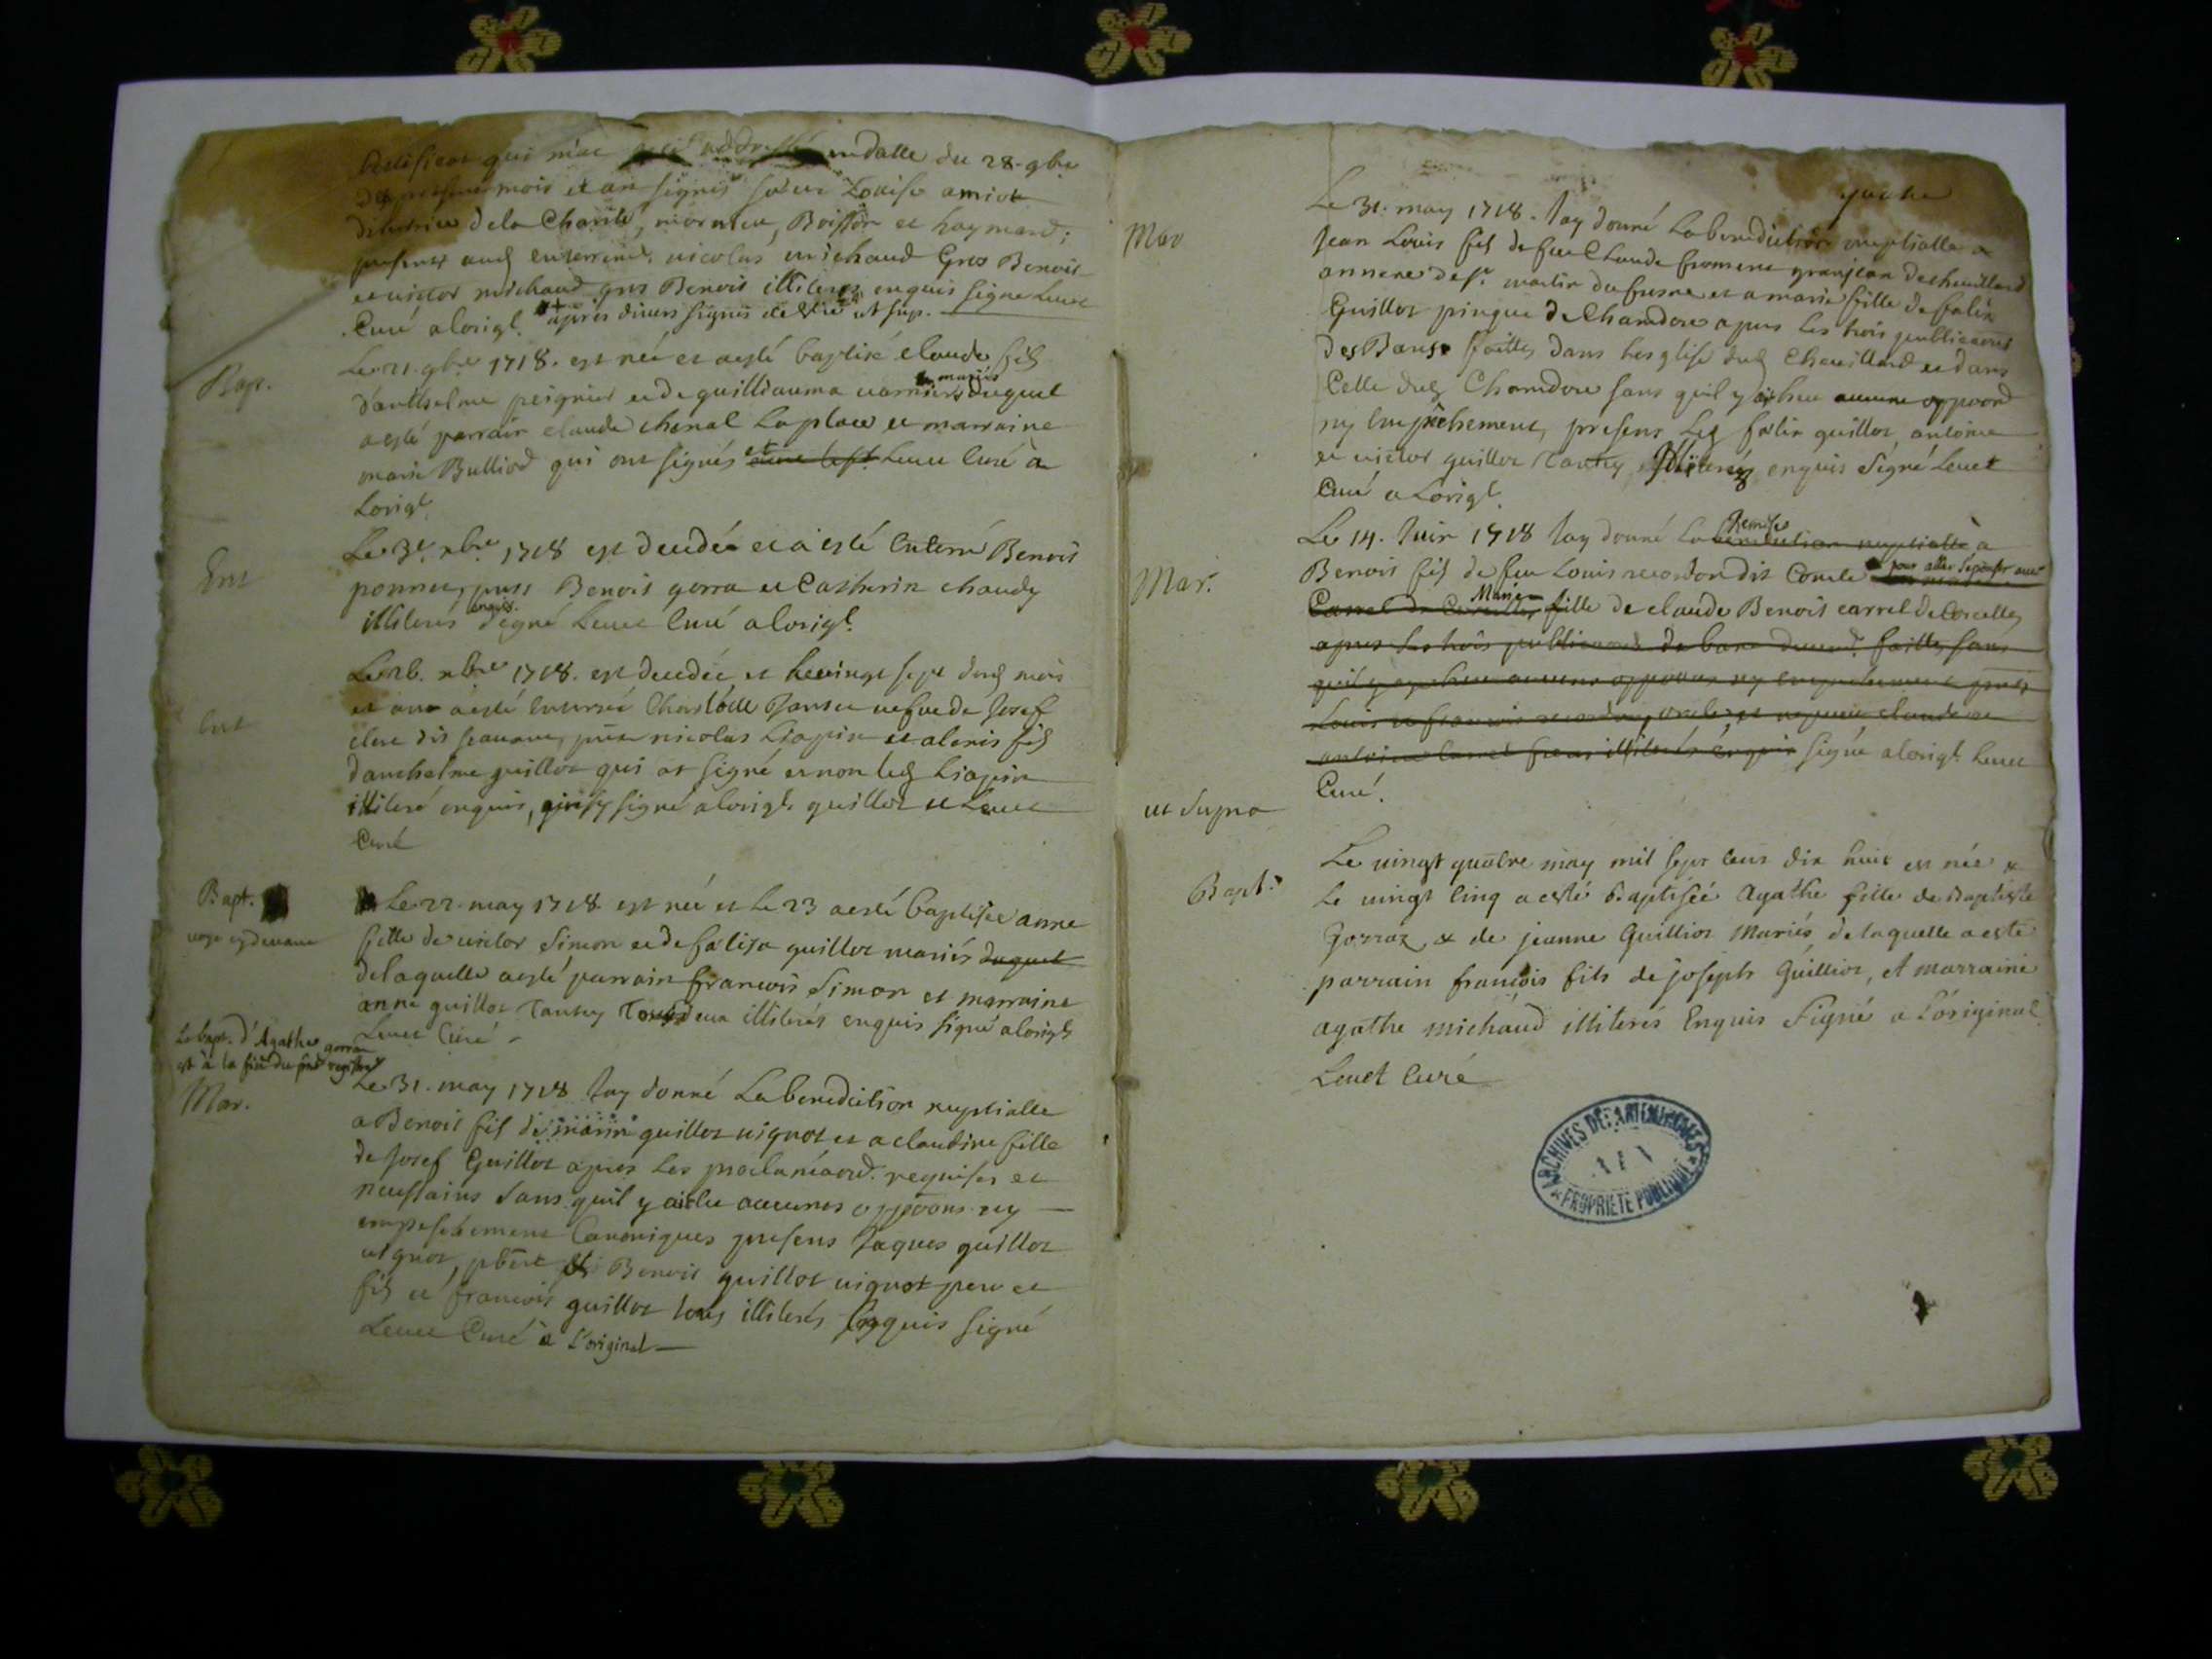 qui m'at endatte du 28. 9bre
mois et an signés sœur Louise amiot
de la Charité, Boisson et haymard;
presens aud enterremt. nicolas michaud Gros Benoit
et victor michaud gros Benoit illiterez enquis signe Leuet
Curé a lorigl. après divers signés ut sup.
Bap.
Le 21. 9bre 1718. est né et a esté baptisé claude fils
d'anthelme peignier et de guilliauma mariés duquel
a esté parrain claude chenal Laplace et marraine
marie Bulliod qui ont signés et Leuet Curé a
Lorigl.
Ent
Le 3e. xbre 1718 est decedée et a esté Enterré Benoit
ponnet, puss Benoit gorra et Catherin chaudy
illiterés enquis. signé Leuet Curé a lorigl.
Ent
Le 26. xbre 1718. est decedée et le vingt sept dud mois
et an a esté enterrée Charlotte Jansee vefve de Josef
clere dit nicolas Liapin et alexis fils
d'anthelme guillot qui at signé et non led Liapin
illiteré enquis, signé a lorigl. guillot et Leuet
Curé
Bapt.
voye cydevant
Le 22. may 1718. est née et le 23 a esté baptisée anne
fille de victor Simon et de falisa guillot mariés duquel
de laquelle a esté parrain francois Simon et marraine
anne guillot Tantey Tous deux illiterés enquis signé a lorigl
Leuet Curé
Le bapt. d'Agathe gorraz
est à la fin du pnt registre
Mar.
Le 31. may 1718 Jay donné La benediction nuptialle
a Benoit fils de marin guillot vignot et a claudine fille
de Josef Guillot apres les proclamaons. requises et
necessaires sans quil y ait eu aucunes oppoons ny
empeschement Canoniques presens Jaques guillot
vignot, Benoit guillot vignot pere et
fils et francois guillot tous illiterés enquis signé
Leuet Curé a L'original
Mar
Le 31. may 1718. Jay donné La benediction nuptialle a
Jean Louis fils de feu Claude froment granjean de cheuillard
annexe de st. martin du fresne et a marie fille de falix
Guillot pingue de Chamdore apres les trois publicaons
des Bans faittes dans lesglise dud Cheuillard et dans
Celle dud Chamdore sans quil y ait heu aucune oppoon
ny Empêchement, presens Led falix guillot, antoine
et victor guillot Tantey, illiterez enquis Signé Leuet
Curé a Lorigl.
Mar.
Le 14. Juin 1718 Jay donné La benediction nuptialle Remise à
Benoit fils de feu Louis recordon dit Comte pour aller s'epouser avec
Carrel de Corcelles Marie fille de claude Benoit carrel de Corcelles
apres les trois publicaons de bans faittes sans
quil y ayt heu aucune oppoon ny empechement
Louis et francois claude et
antoine carrel freres illiterés enquis signé a lorigl. Leuet
Curé.
ut supra
Bapt.
Le vingt quatre may mil sept cens dix huit est née &
Le vingt cinq a esté Baptisée Agathe fille de Baptiste
Gorraz & de jeanne Guilliot Mariés, de laquelle a esté
parrain francois fils de joseph Guilliot, et marraine
agathe michaud illiterés Enquis Signé a L'original
Leuet Curé
ARCHIVES DÉPARTEMENTALES
AIN
PROPRIÉTÉ PUBLIQUE